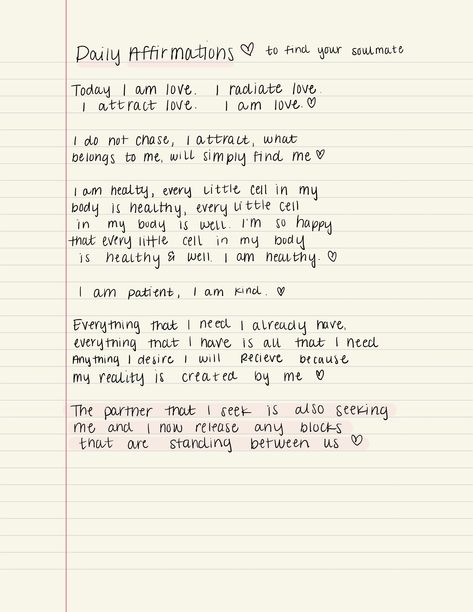 Daily Affirmations ♡ to find your soulmate
Today I am love. I radiate love.
I attract love. I am love. ♡
I do not chase, I attract, what
belongs to me, will simply find me ♡
I am healty, every little cell in my
body is healthy, every little cell
in my body is well. I'm so happy
that every little cell in my body
is healthy & well. I am healthy. ♡
I am patient, I am kind. ♡
Everything that I need I already have,
everything that I have is all that I need
Anything I desire I will recieve because
my reality is created by me ♡
The partner that I seek is also seeking
me and I now release any blocks
that are standing between us ♡